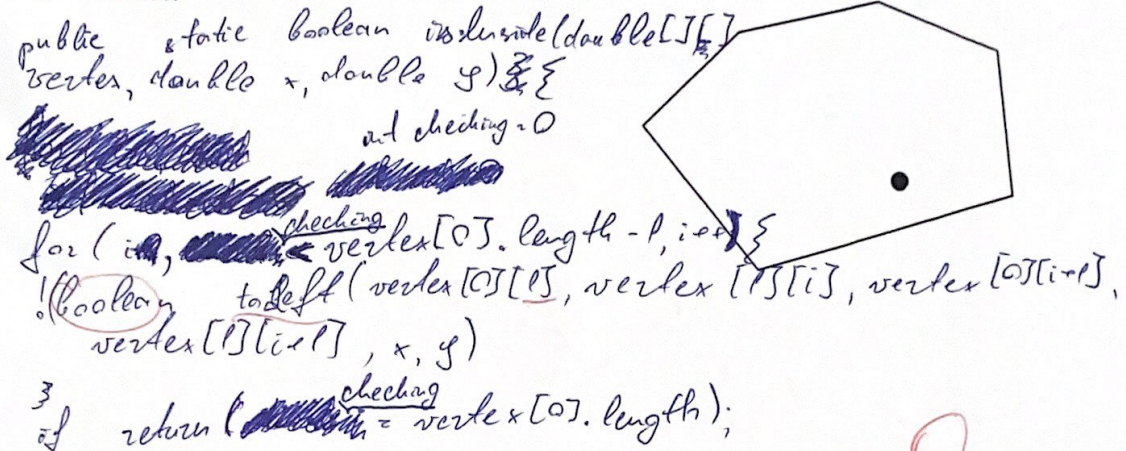 public static boolean isInside(double[][]
vertex, double x, double y) {
int checking = 0
for (i, checking < vertex[0].length - 1, i++) {
!(boolean toLeft (vertex[0][1], vertex [1][i], vertex [0][i+1],
vertex[1][i+1], x, y)
}
if return ( checking = vertex[0].length);